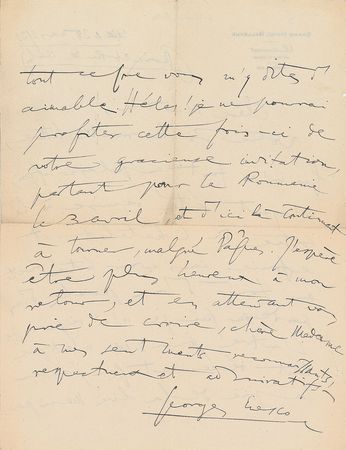 tout ce que vous m'y dites d'
aimable. Hélas! je ne pourrai
profiter cette fois-ci de
votre gracieuse invitation,
partant pour la Roumanie
le 3 avril, et d'ici là continuant
à tourner, malgré Pâques. J'espère
être plus heureux à mon
retour, et en attendant vous
prie de croire, chère Madame
à mes sentiments reconnaissants,
respectueux et admiratifs.
Georges Enesco